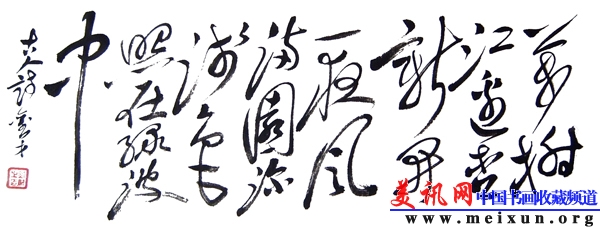 萬樹
江邊杏
新開
一夜風
满園深
浅色
照在绿波
中
古人詩
美讯网中国书画收藏频道
www.meixun.org